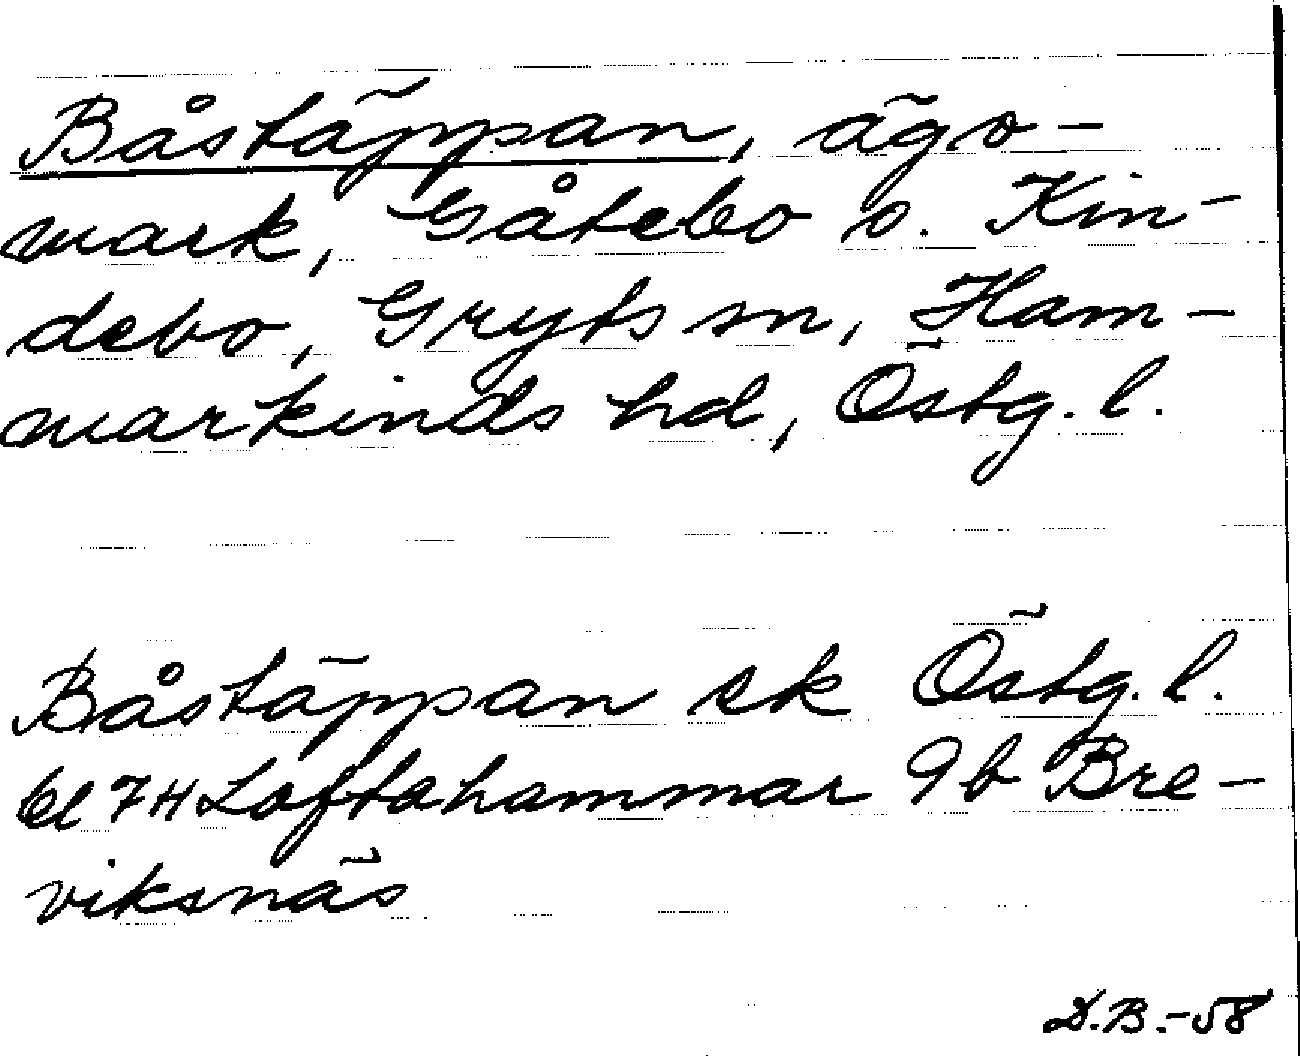 Båstäppan, ägo-
mark, Gåtebo o. Kin-
debo, Gryts sn, Ham-
markinds hd, Östg. l.
Båstäppan ek Östg. l.
bl 7H Loftahammar 9b Bre-
viksnäs
D.B.-58